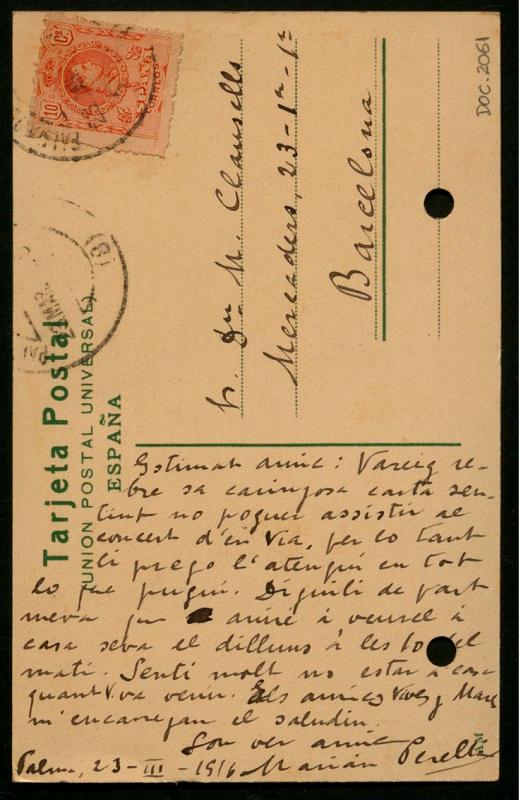 DOC. 2061
10
ESPAÑA
CORREOS
(8)
MAR
Tarjeta Postal
(UNION POSTAL UNIVERSAL)
ESPAÑA
Sr. Dn. N. Clausells
Mercaders, 23-1er-1a
Barcelona
Estimat amic: Vareig re-
bre sa carinyosa carta sen-
tint no poguer assistir al
concert d'en Via, per lo tant
li prego l'atengui en tot
lo que pugui. Diguili de part
meva que aniré a veurel à
casa seva el dilluns à les 10 del
mati. Senti molt no estar a casa
quant va venir. Els amics Vives y
m'encarregan el saludin.
Son ver amic
Marián Perelló
Palma, 23-III-1916